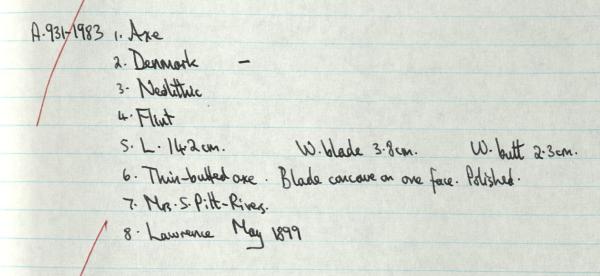 A.931-1983 1. Axe
2. Denmark -
3. Neolithic
4. Flint
5. L. 14.2cm. W. blade 3.8cm. W. butt 2.3cm.
6. Thin-butted axe. Blade concave on one face. Polished.
7. Mrs. S. Pitt-Rivers.
8. Lawrence May 1899